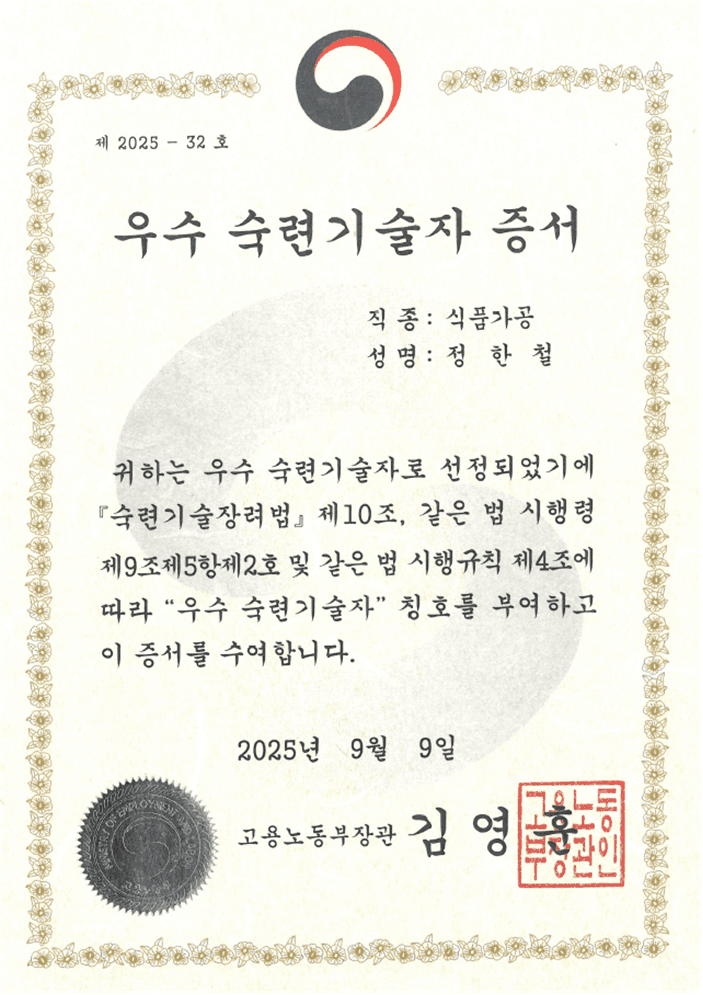 제 2025 - 32 호
우수 숙련기술자 증서
직 종 : 식품가공
성 명 : 정 한 철
귀하는 우수 숙련기술자로 선정되었기에
『숙련기술장려법』 제10조, 같은 법 시행령
제9조제5항제2호 및 같은 법 시행규칙 제4조에
따라 “우수 숙련기술자” 칭호를 부여하고
이 증서를 수여합니다.
2025년 9월 9일
고용노동부장관 김 영 훈
고용노동
부장관인
MINISTRY OF EMPLOYMENT AND